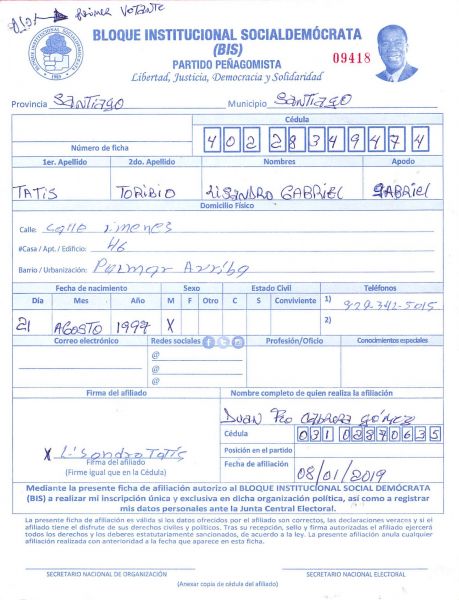 Primer Votante
BLOQUE INSTITUCIONAL SOCIALDEMÓCRATA
(BIS)
PARTIDO PEÑAGOMISTA
Libertad, Justicia, Democracia y Solidaridad
09418
Provincia Santiago Municipio Santiago
Cédula
Número de ficha 4 0 2 2 8 3 4 9 4 7 4
1er. Apellido 2do. Apellido Nombres Apodo
TATIS TORIBIO LISANDRO GABRIEL GABRIEL
Domicilio Físico
Calle: Calle Jimenes
#Casa / Apt. / Edificio: 46
Barrio / Urbanización: Palmar Arriba
Fecha de nacimiento Sexo Estado Civil Teléfonos
Día Mes Año M F Otro C S Conviviente 1) 829-342-5015
21 AGOSTO 1997 X 2)
Correo electrónico Redes sociales Profesión/Oficio Conocimientos especiales
@
@
@
Firma del afiliado Nombre completo de quien realiza la afiliación
Juan Fco Cabrera Gómez
Cédula 0 3 1 0 2 8 7 0 6 3 5
X Lisandro Tatis
Posición en el partido
Firma del afiliado
(Firme igual que en la Cédula)
Fecha de afiliación 08/01/2019
Mediante la presente ficha de afiliación autorizo al BLOQUE INSTITUCIONAL SOCIAL DEMÓCRATA
(BIS) a realizar mi inscripción única y exclusiva en dicha organización política, así como a registrar
mis datos personales ante la Junta Central Electoral.
La presente ficha de afiliación es válida si los datos ofrecidos por el afiliado son correctos, las declaraciones veraces y si el
afiliado tiene el disfrute de sus derechos civiles y políticos. Tras su recepción, sello y firma autorizadas el afiliado ejercerá
todos los derechos y los deberes estatutariamente sancionados, de acuerdo a la ley. La presente afiliación anula cualquier
afiliación realizada con anterioridad a la fecha que aparece en esta ficha.
SECRETARIO NACIONAL DE ORGANIZACIÓN SECRETARIO NACIONAL ELECTORAL
(Anexar copia de cédula del afiliado)